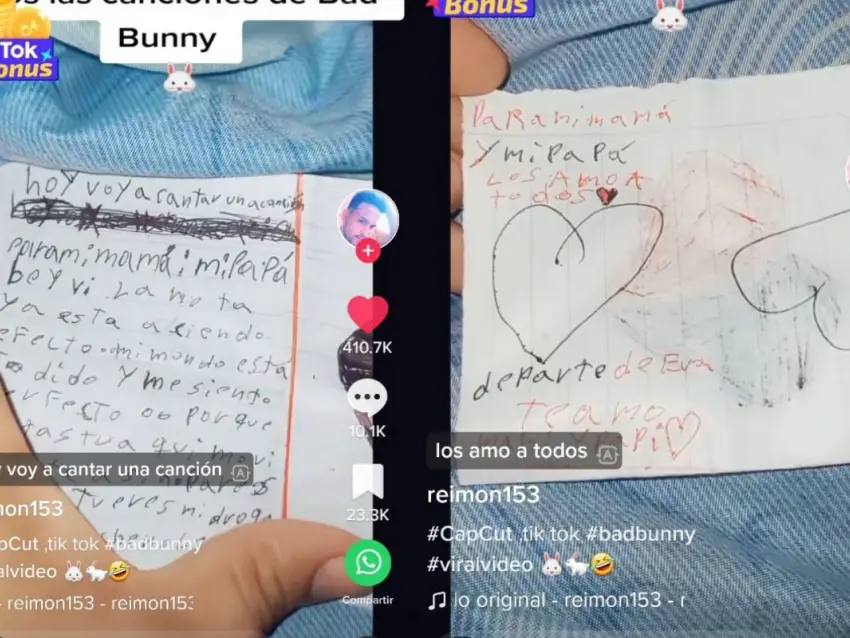 os las canciones de Bad
Bunny
Tok
Bonus
hoy voy a cantar una canción
para mi mamá i mi papá
bey vi. La no ta
ya esta asiendo
efecto. mi mondo está
dido y me siento
erfecto oo porque
tas tua qui mo vi
tu eres mi droga
410.7K
10.1K
23.3K
Compartir
voy a cantar una canción
mon153
pCut ,tik tok #badbunny
alvideo 🐰🐇🤣
- reimon153 - reimon153
Bonus
Para mi mamá
Y mi Papá
LOS AMO A
todos
departe de Eva
te amo
los amo a todos
reimon153
#CapCut ,tik tok #badbunny
#viralvideo 🐰🐇🤣
lo original - reimon153 - r